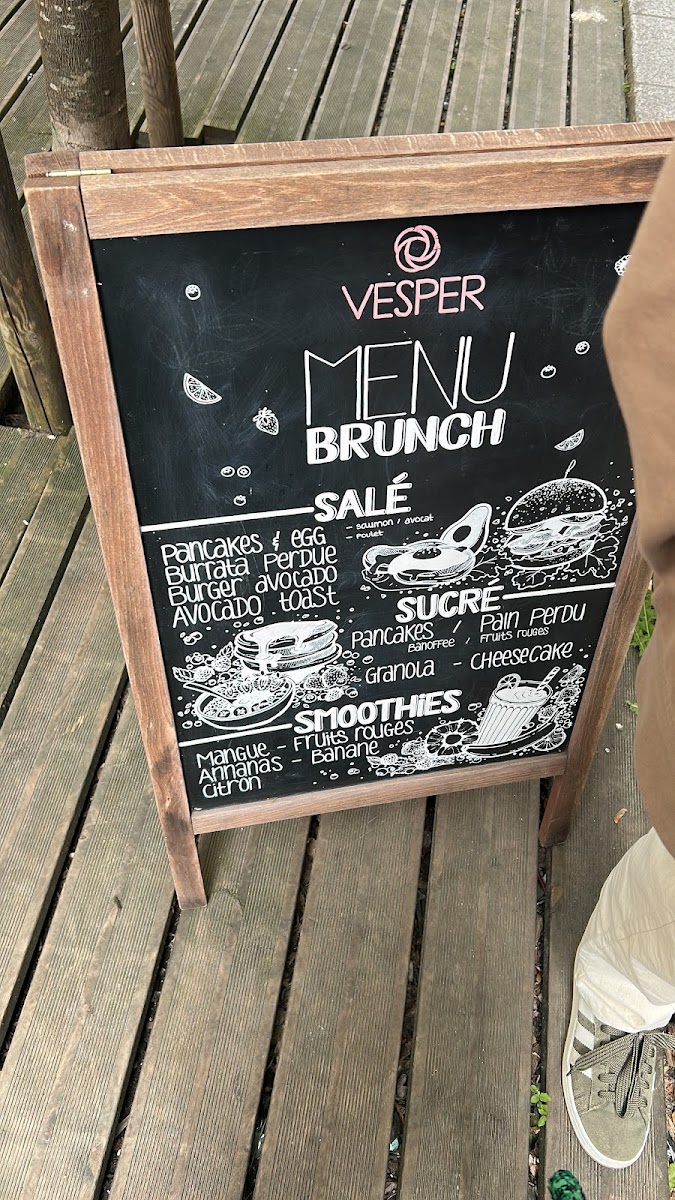 VESPER
MENU
BRUNCH
SALÉ
Pancakes & egg
- saumon / avocat
- poulet
Burrata perdue
Burger avocado
Avocado toast
SUCRÉ
Pancakes / Pain perdu
Banoffee / Fruits rouges
Granola - Cheesecake
SMOOTHiES
Mangue - Fruits rouges
Annanas - Banane
Citron